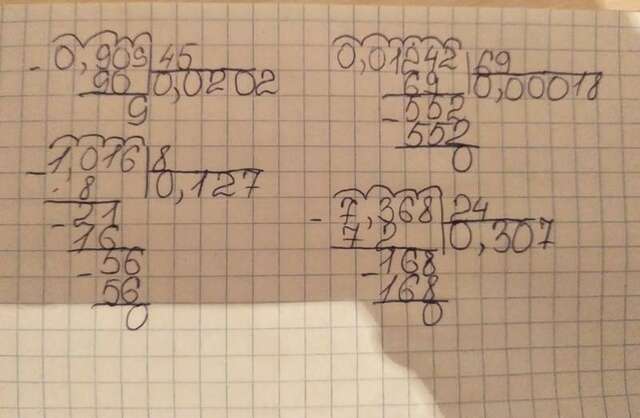 - 0,909 45
90 0,0202
9
- 1,016 8
8 0,127
- 21
16
- 56
56
0
0,01242 69
69 0,00018
- 552
552
0
- 7,368 24
7 2 0,307
- 168
168
0